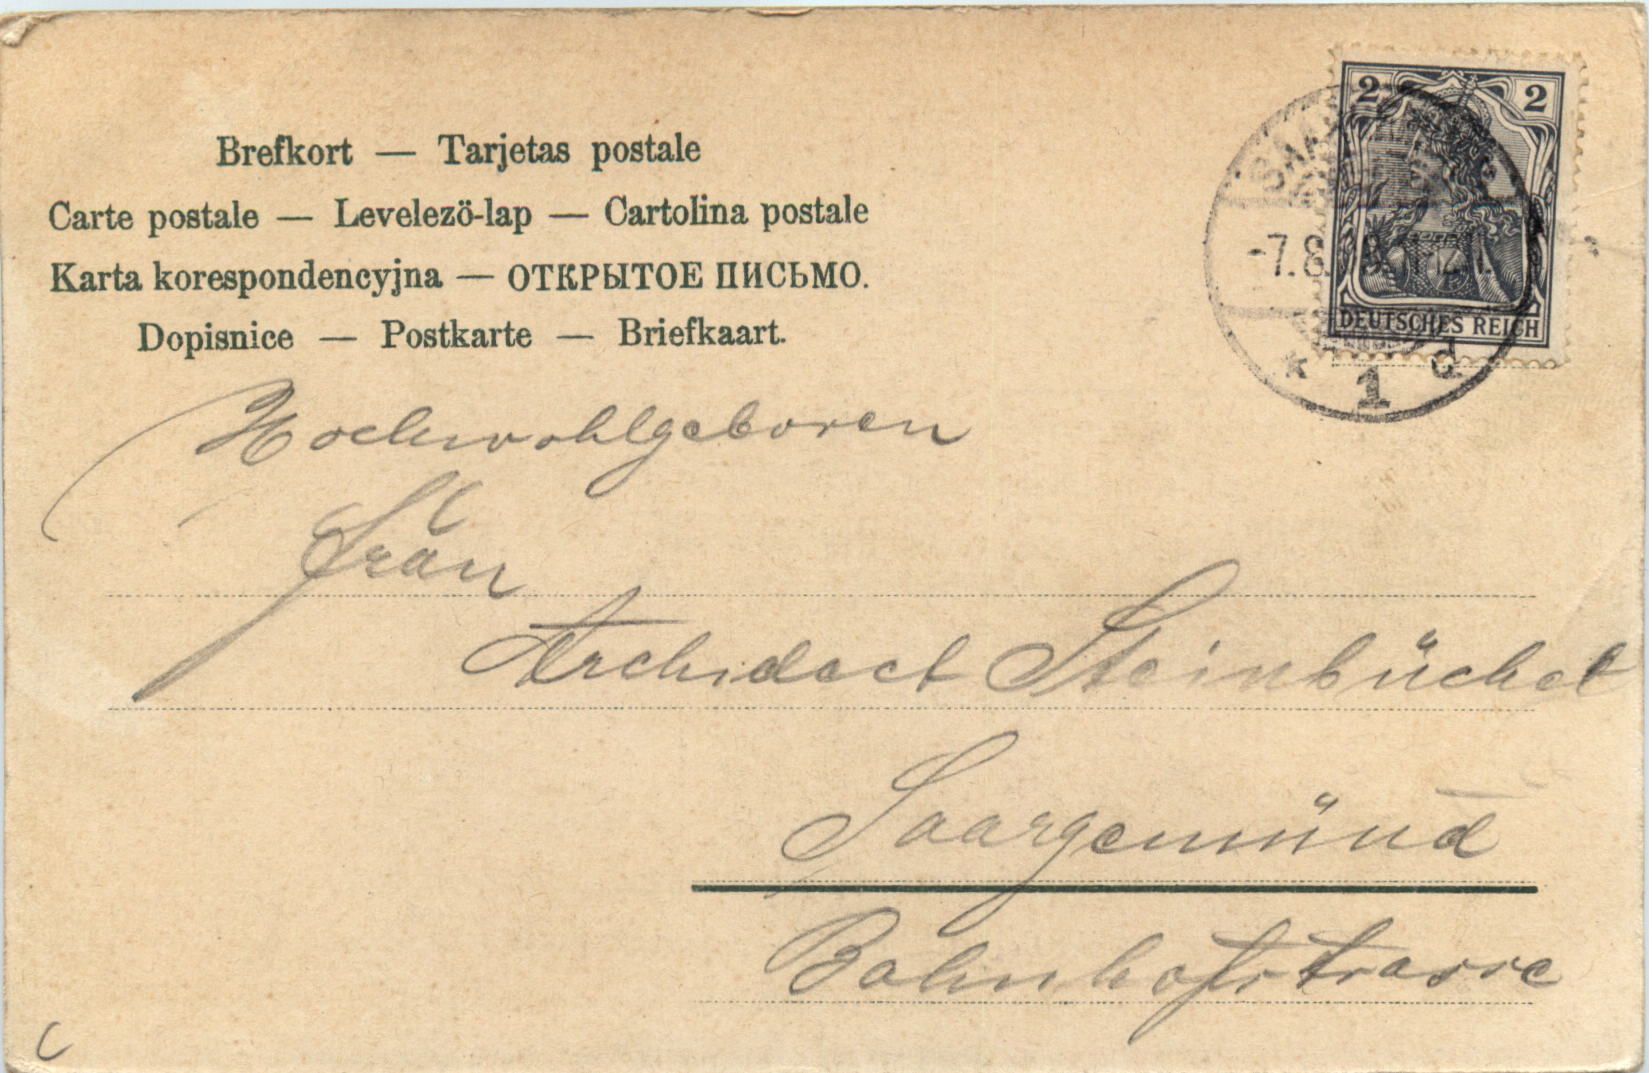 Brefkort — Tarjetas postale
Carte postale — Levelezö-lap — Cartolina postale
Karta korespondencyjna — ОТКРЫТОЕ ПИСЬМО.
Dopisnice — Postkarte — Briefkaart.
2 2
DEUTSCHES REICH
-7.8.
* 1 d
Hochwohlgeboren
Frau
Archidect Steinbüchel
Saargemünd
Bahnhofstrasse